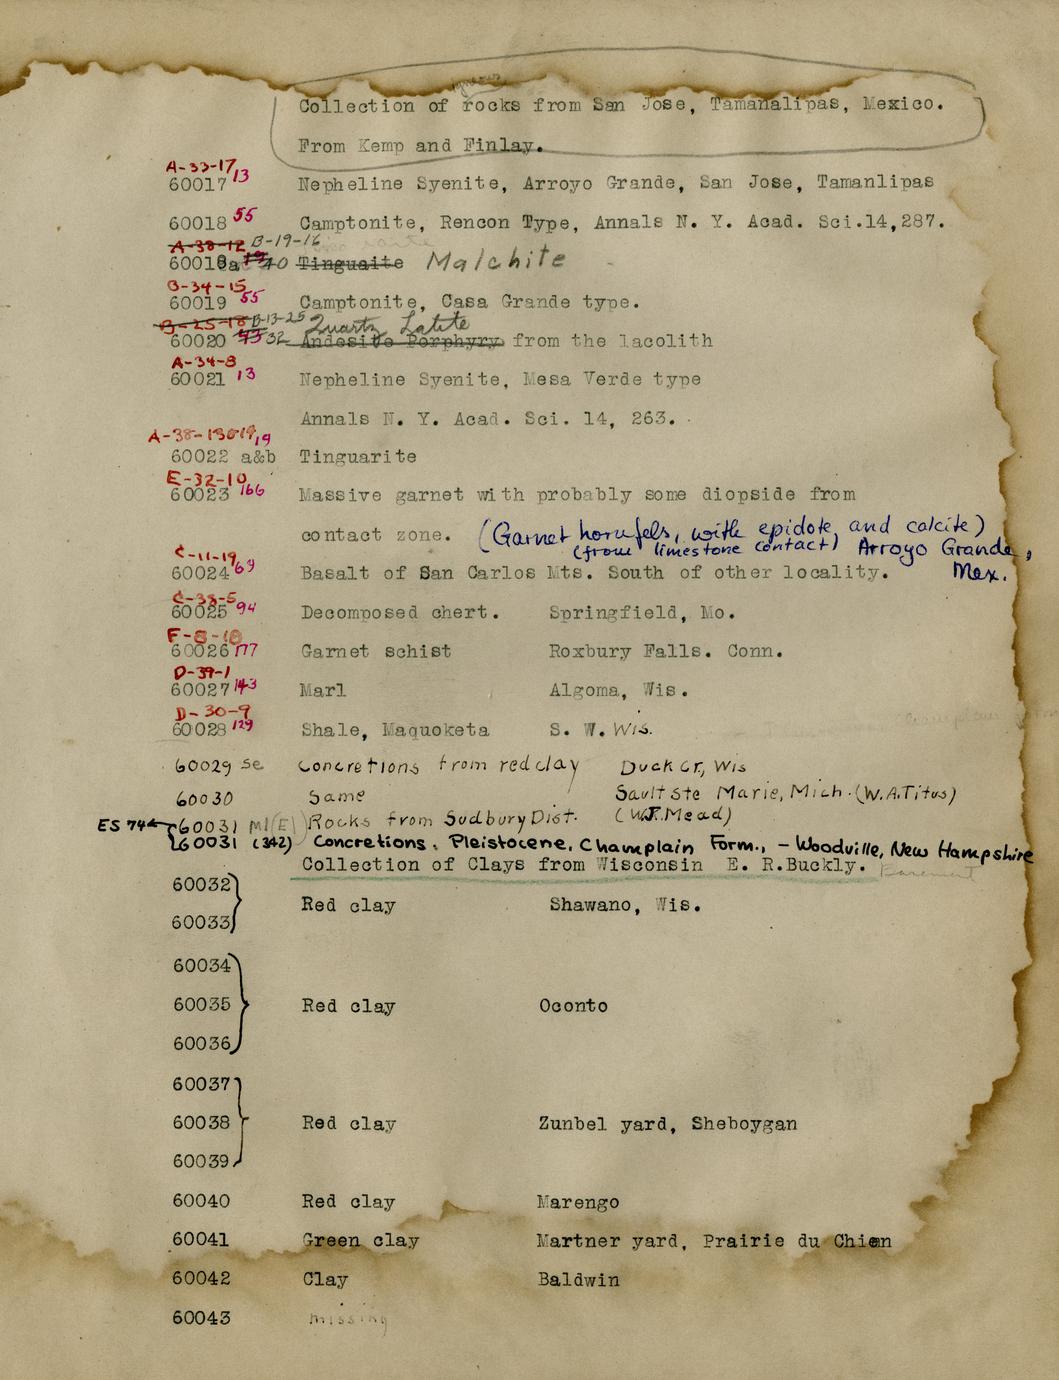 igneous
Collection of rocks from San Jose, Tamanalipas, Mexico.
From Kemp and Finlay.
A-33-17
60017 13 Nepheline Syenite, Arroyo Grande, San Jose, Tamanlipas
60018 55 Camptonite, Rencon Type, Annals N. Y. Acad. Sci.14,287.
A-38-12 B-19-16
60018a 40 Tinguaite Malchite
B-34-15
60019 55 Camptonite, Casa Grande type.
B-25-18 B-13-25 Quartz Latite
60020 43 32 Andesite Porphyry from the lacolith
A-34-8
60021 13 Nepheline Syenite, Mesa Verde type
Annals N. Y. Acad. Sci. 14, 263.
19
60022 a&b Tinguarite
E-32-10
60023 166 Massive garnet with probably some diopside from
contact zone. (Garnet hornfels, with epidote, and calcite)
(from limestone contact) Arroyo Grande,
C-11-19
60024 69 Basalt of San Carlos Mts. South of other locality. Mex.
C-33-5
60025 94 Decomposed chert. Springfield, Mo.
F-8-18
60026 177 Garnet schist Roxbury Falls. Conn.
D-39-1
60027 143 Marl Algoma, Wis.
D-30-9
60028 129 Shale, Maquoketa S. W. Wis.
60029 se Concretions from red clay Duck Cr, Wis
60030 Same Sault Ste Marie, Mich. (W.A.Titus)
ES 74 60031 MI(E) Rocks from Sudbury Dist. (W.J.Mead)
60031 (342) Concretions, Pleistocene, Champlain Form., - Woodville, New Hampshire
Collection of Clays from Wisconsin E. R.Buckly. Basement
60032
Red clay Shawano, Wis.
60033
60034
60035 Red clay Oconto
60036
60037
60038 Red clay Zunbel yard, Sheboygan
60039
60040 Red clay Marengo
60041 Green clay Martner yard, Prairie du Chien
60042 Clay Baldwin
60043 missing